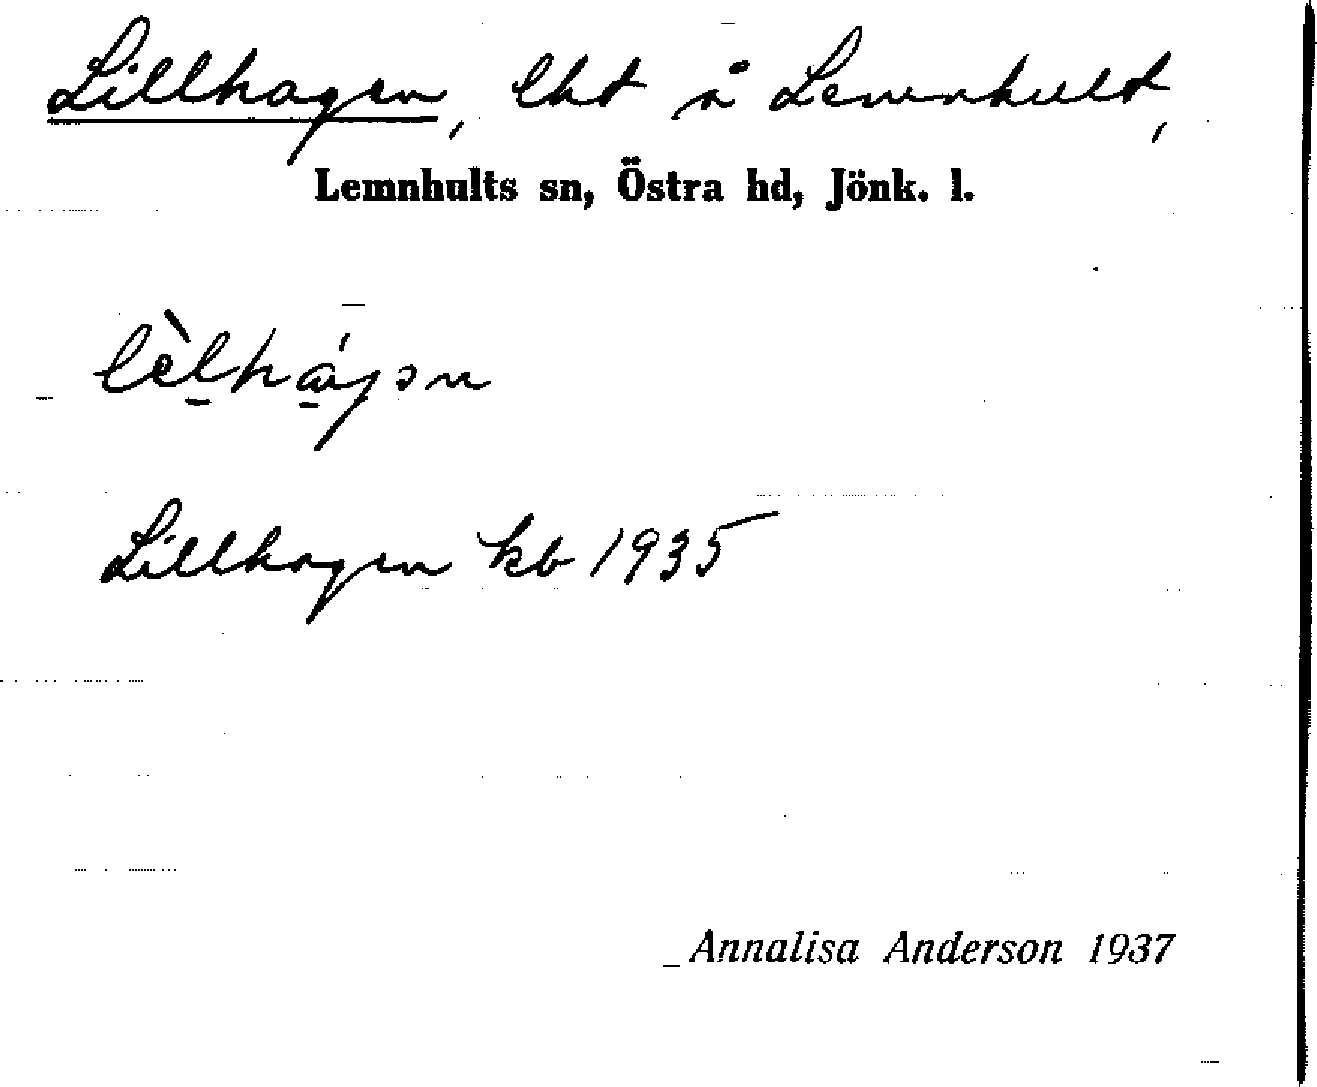 Lillhagen, lht å Lemnhult,
Lemnhults sn, Östra hd, Jönk. l.
lèlhá̱gən
Lillhagen kb 1935
Annalisa Anderson 1937